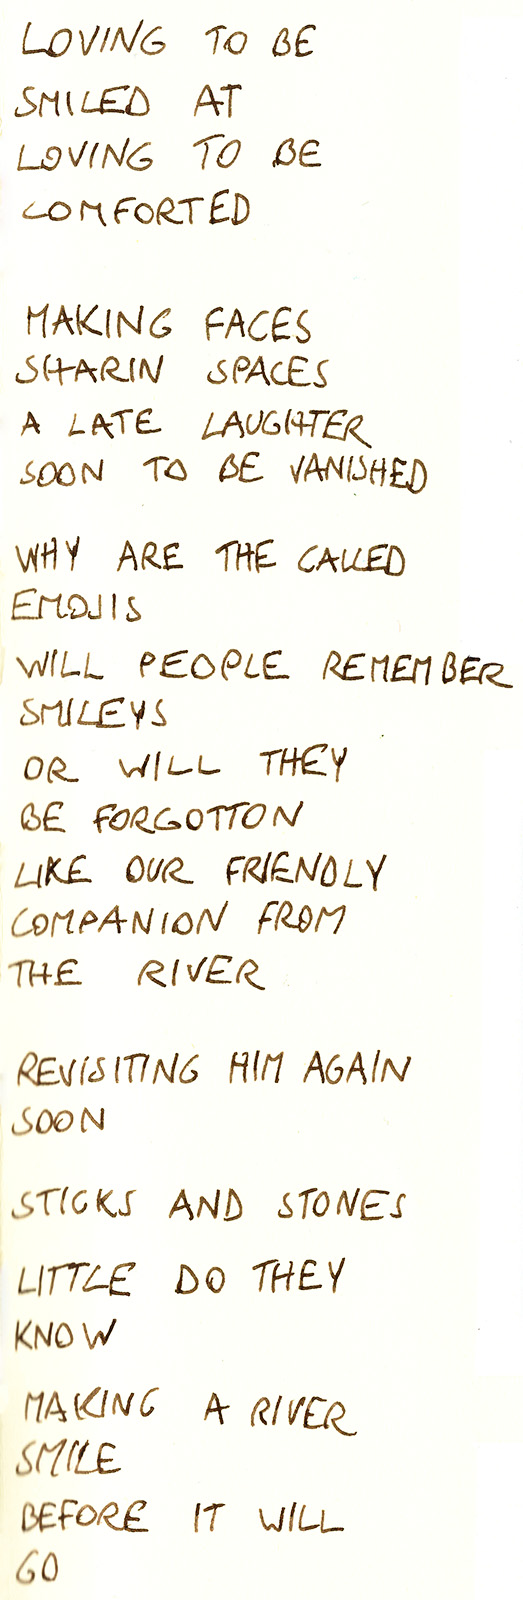 LOVING TO BE
SMILED AT
LOVING TO BE
COMFORTED
MAKING FACES
SHARIN SPACES
A LATE LAUGHTER
SOON TO BE VANISHED
WHY ARE THE CALLED
EMOJIS
WILL PEOPLE REMEMBER
SMILEYS
OR WILL THEY
BE FORGOTTON
LIKE OUR FRIENDLY
COMPANION FROM
THE RIVER
REVISITING HIM AGAIN
SOON
STICKS AND STONES
LITTLE DO THEY
KNOW
MAKING A RIVER
SMILE
BEFORE IT WILL
GO